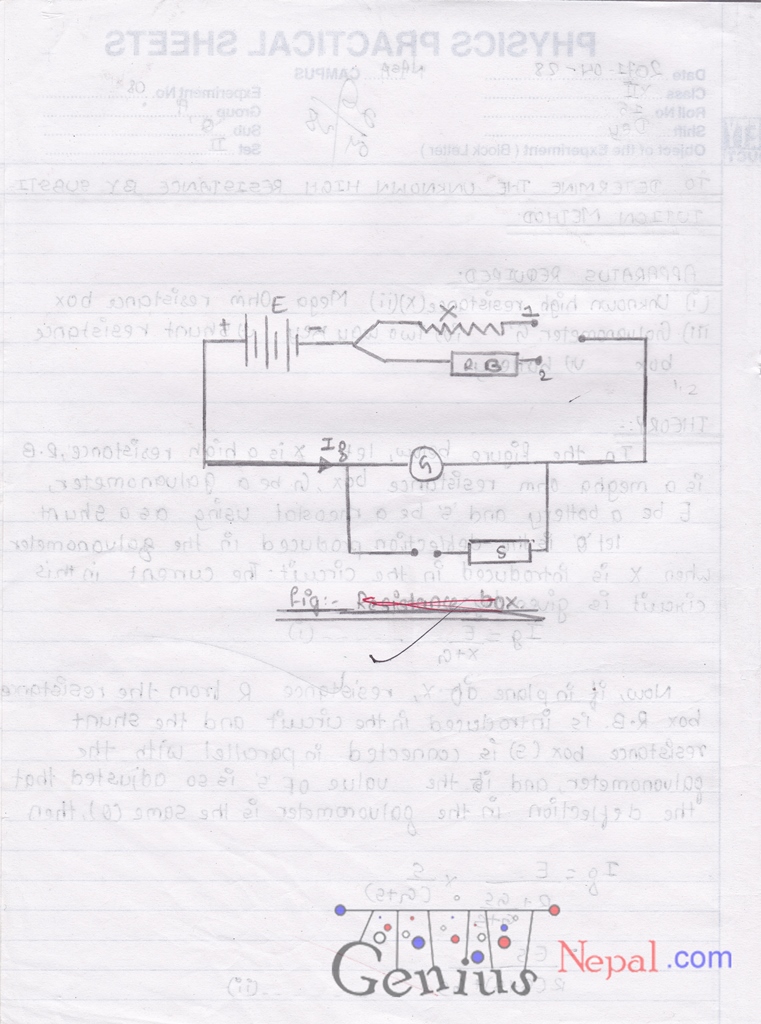 PHYSICS PRACTICAL SHEETS
Date 2071-04-28 CAMPUS
Class XII Experiment No. 08
Roll No Group A
Shift Day Sub
Object of the Experiment (Block Letter) Set II
TO DETERMINE THE UNKNOWN HIGH RESISTANCE BY SUBSTI-
TUTION METHOD
APPARATUS REQUIRED:
(i) Unknown high resistance(x)(ii) Mega Ohm resistance box
iii) Galvanometer G two way key shunt resistance
box
E X 1
+ -
R B 2
THEORY:-
Ig G
In the figure below, let x is a high resistance, R.B
is a megha ohm resistance box, G be a galvanometer,
E be a battery and s be a rheostat using as a shunt
S
let θ is the deflection produced in the galvanometer
when X is introduced in the circuit. The current in this
circuit is given
fig:- Resistance box
Ig = E (i)
x+G
Now, if in plane of X, resistance R from the resistance
box R.B. is introduced in the circuit and the shunt
resistance box (S) is connected in parallel with the
galvanometer, and if the value of s is so adjusted that
the deflection in the galvanometer is the same (θ), then
Ig = E × S
(G+S)
ES
(ii)
Genius Nepal.com